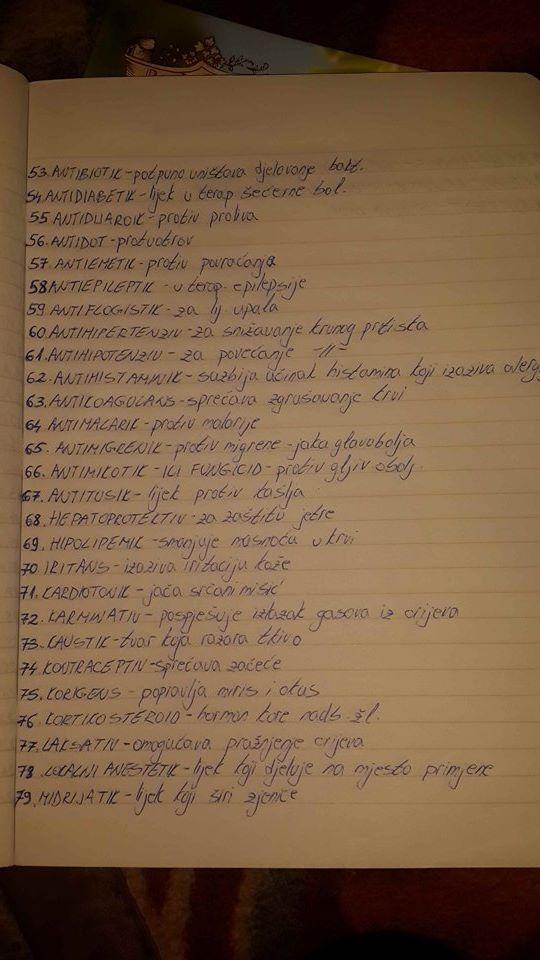 53. ANTIBIOTIK - potpuno uništava djelovanje bakt.
54 ANTIDIABETIK - lijek u terap. šećerne bol.
55 ANTIDIJAROIK - protiv proliva
56. ANTIDOT - protuotrov
57. ANTIEMETIK - protiv povraćanja
58 ANTIEPILEPTIK - u terap. epilepsije
59 ANTIFLOGISTIK - za lij. upala
60. ANTIHIPERTENZIV - za snižavanje krvnog pritiska
61. ANTIHIPOTENZIV - za povećanje -//-
62. ANTIHISTAMINIK - suzbija učinak histamina koji izaziva alerg
63. ANTIKOAGULANS - sprečava zgrušavanje krvi
64 ANTIMALARIK - protiv malarije
65. ANTIMIGRENIK - protiv migrene - jaka glavobolja
66. ANTIMIKOTIK - ILI FUNGICID - protiv gljiv. obolj.
67. ANTITUSIK - lijek protiv kašlja
68. HEPATOPROTEKTIV - za zaštitu jetre
69. HIPOLIPEMIK - smanjuje masnoću u krvi
70. IRITANS - izaziva iritaciju kože
71. KARDIOTONIK - jača srčani mišić
72. KARMINATIV - pospješuje izlazak gasova iz crijeva
73. KAUSTIK - tvar koja razara tkivo
74 KONTRACEPTIV - sprečava začeće
75. KORIGENS - popravlja miris i okus
76 KORTIKOSTEROID - hormon kore nadb. žl.
77. LAKSATIV - omogućava pražnjenje crijeva
78 LOKALNI ANESTETIK - lijek koji djeluje na mjesto primjene
79. MIDRIJATIK - lijek koji širi zjenice